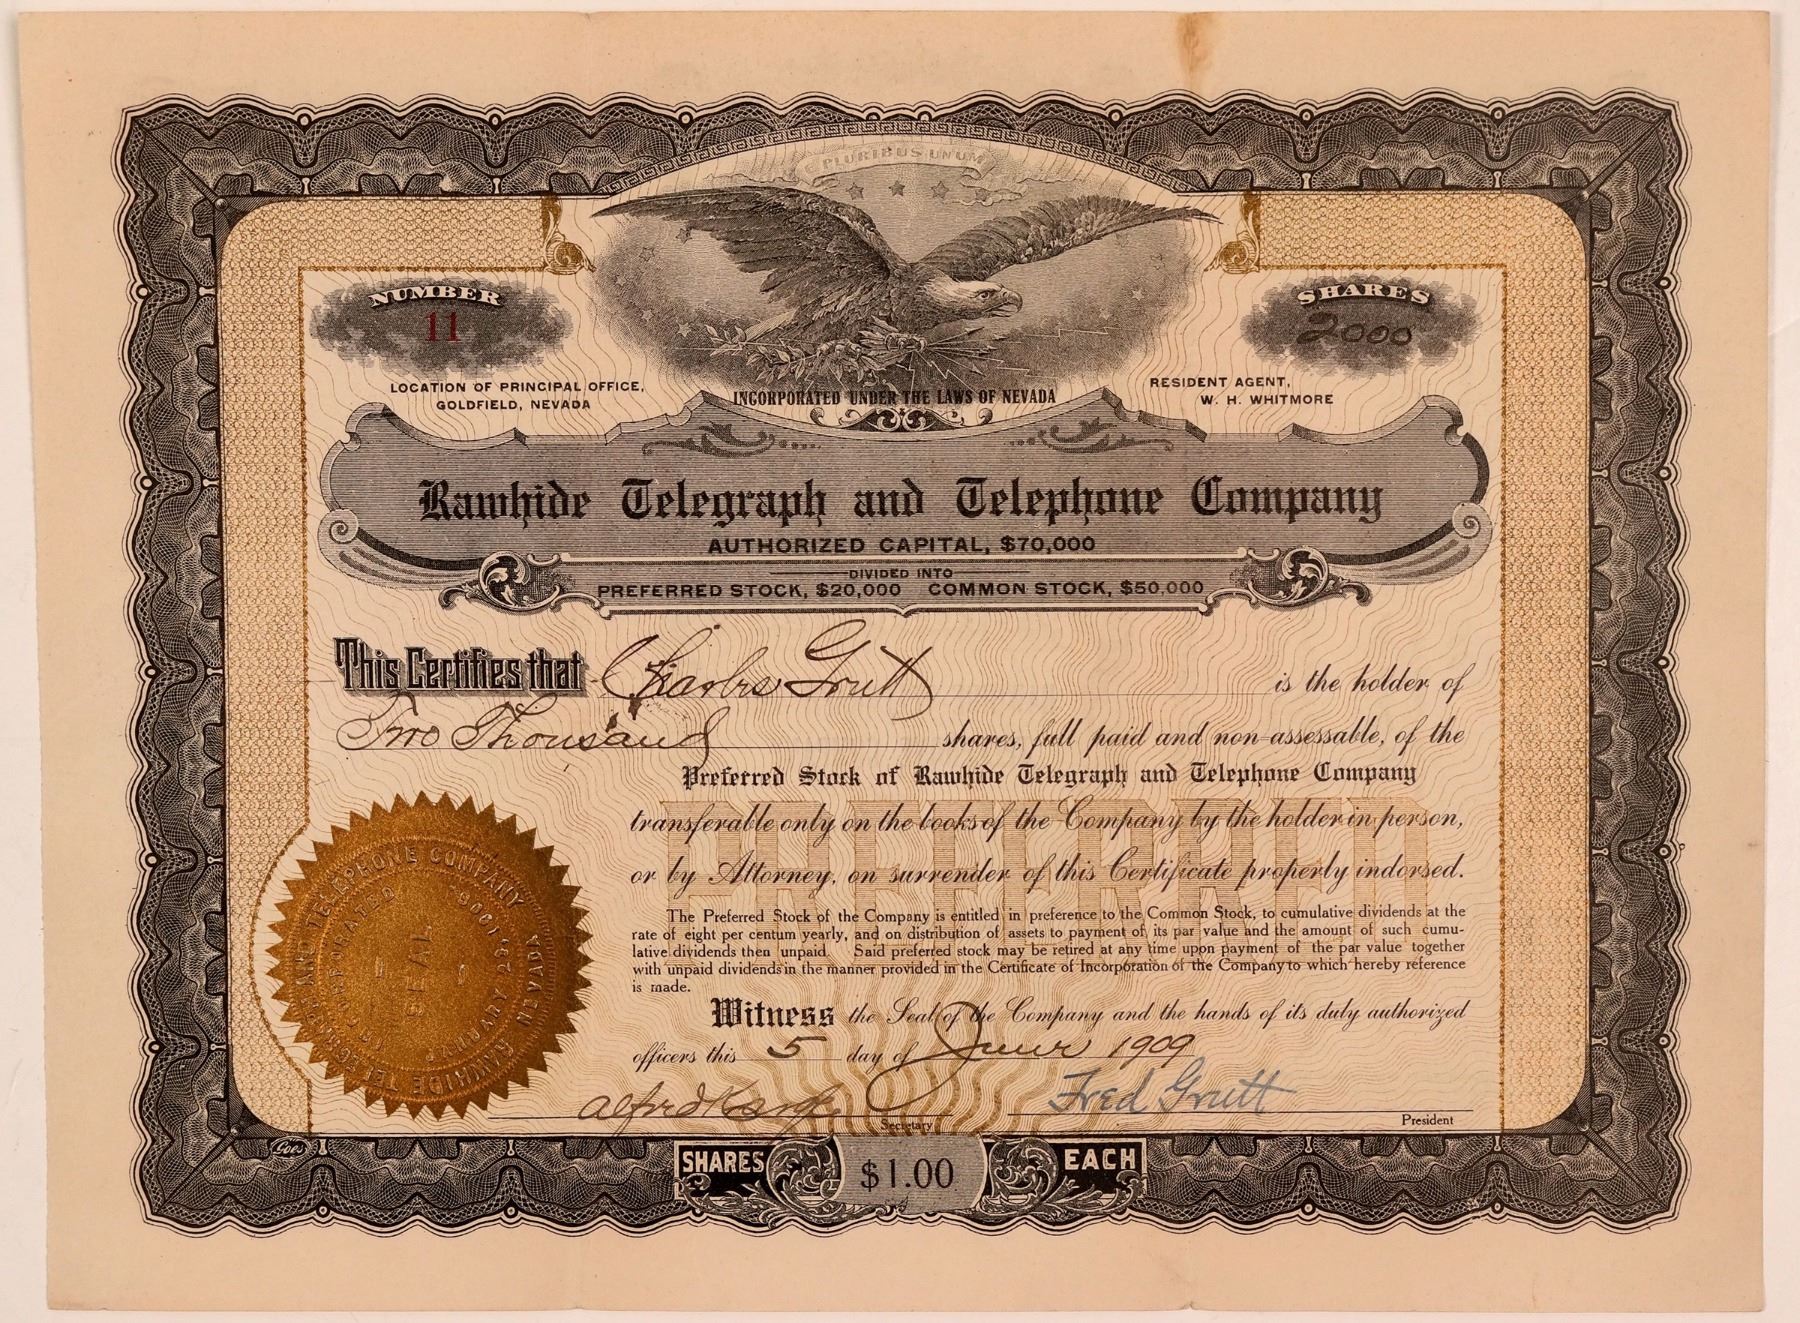 PLURIBUS UNUM
NUMBER
11
SHARES
2000
LOCATION OF PRINCIPAL OFFICE,
GOLDFIELD, NEVADA
INCORPORATED UNDER THE LAWS OF NEVADA
RESIDENT AGENT,
W. H. WHITMORE
Rawhide Telegraph and Telephone Company
AUTHORIZED CAPITAL, $70,000
DIVIDED INTO
PREFERRED STOCK, $20,000 COMMON STOCK, $50,000
This Certifies that Charles Grutt is the holder of
Two Thousand shares, full paid and non-assessable, of the
Preferred Stock of Rawhide Telegraph and Telephone Company
PREFERRED
transferable only on the books of the Company by the holder in person,
or by Attorney, on surrender of this Certificate properly indorsed.
The Preferred Stock of the Company is entitled in preference to the Common Stock, to cumulative dividends at the
rate of eight per centum yearly, and on distribution of assets to payment of its par value and the amount of such cumu-
lative dividends then unpaid. Said preferred stock may be retired at any time upon payment of the par value together
with unpaid dividends in the manner provided in the Certificate of Incorporation of the Company to which hereby reference
is made.
Witness the Seal of the Company and the hands of its duly authorized
officers this 5 day of June 1909
Alfred Fred Grutt
Secretary President
RAWHIDE TELEGRAPH AND TELEPHONE COMPANY
INCORPORATED 1908
SEAL
NEVADA
Goes
SHARES $1.00 EACH